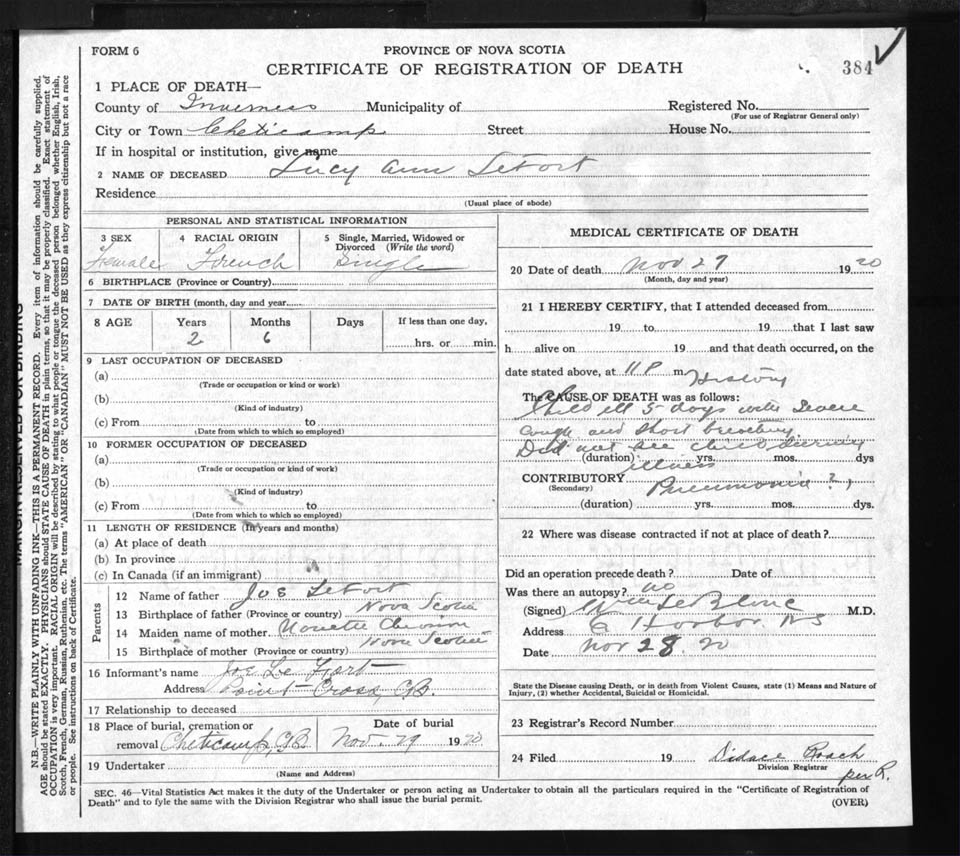 FORM 6
PROVINCE OF NOVA SCOTIA
CERTIFICATE OF REGISTRATION OF DEATH
384
1 PLACE OF DEATH—
County of Inverness Municipality of Registered No.
(For use of Registrar General only)
City or Town Cheticamp Street House No.
If in hospital or institution, give name
2 NAME OF DECEASED Lucy Ann LeFort
Residence
(Usual place of abode)
PERSONAL AND STATISTICAL INFORMATION
3 SEX 4 RACIAL ORIGIN 5 Single, Married, Widowed or Divorced (Write the word)
Female French Single
6 BIRTHPLACE (Province or Country)
7 DATE OF BIRTH (month, day and year)
8 AGE Years Months Days If less than one day,
2 6 hrs. or min.
9 LAST OCCUPATION OF DECEASED
(a)
(Trade or occupation or kind or work)
(b)
(Kind of industry)
(c) From to
(Date from which to which so employed)
10 FORMER OCCUPATION OF DECEASED
(a)
(Trade or occupation or kind of work)
(b)
(Kind of industry)
(c) From to
(Date from which to which so employed)
11 LENGTH OF RESIDENCE (In years and months)
(a) At place of death
(b) In province
(c) In Canada (if an immigrant)
Parents
12 Name of father Jos LeFort
13 Birthplace of father (Province or country) Nova Scotia
14 Maiden name of mother
15 Birthplace of mother (Province or country) Nova Scotia
16 Informant's name Joe Le Fort
Address Point Cross, C.B.
17 Relationship to deceased
18 Place of burial, cremation or Date of burial
removal Cheticamp, C.B. Nov. 29 1920
19 Undertaker
(Name and Address)
MEDICAL CERTIFICATE OF DEATH
20 Date of death Nov 27 1920
(Month, day and year)
21 I HEREBY CERTIFY, that I attended deceased from
19 to 19 that I last saw
h alive on 19 and that death occurred, on the
date stated above, at 11 P m History
The CAUSE OF DEATH was as follows:
Child ill 5 days with Severe
Cough and Short breathing
Did not see child during
(duration) yrs. mos. dys
illness
CONTRIBUTORY Pneumonia ?
(Secondary)
(duration) yrs. mos. dys.
22 Where was disease contracted if not at place of death?
Did an operation precede death? Date of
Was there an autopsy? no
(Signed) LeBlanc M.D.
Address Harbor. N S
Date Nov 28. 20
State the Disease causing Death, or in death from Violent Causes, state (1) Means and Nature of
Injury, (2) whether Accidental, Suicidal or Homicidal.
23 Registrar's Record Number
24 Filed 19 Roach
Division Registrar
per R.
SEC. 46—Vital Statistics Act makes it the duty of the Undertaker or person acting as Undertaker to obtain all the particulars required in the "Certificate of Registration of
Death" and to fyle the same with the Division Registrar who shall issue the burial permit.
(OVER)
MARGIN RESERVED FOR BINDING
N.B.—WRITE PLAINLY WITH UNFADING INK—THIS IS A PERMANENT RECORD. Every item of information should be carefully supplied.
AGE should be stated EXACTLY. PHYSICIANS should STATE CAUSE OF DEATH in plain terms, so that it may be properly classified. Exact statement of
OCCUPATION is very important. RACIAL ORIGIN will be described by stating to what people or tongue the deceased person belonged whether English, Irish,
Scotch, French, German, Russian, Ruthenian, etc. The terms "AMERICAN" OR "CANADIAN" MUST NOT BE USED as they express citizenship but not a race
or people. See instructions on back of Certificate.